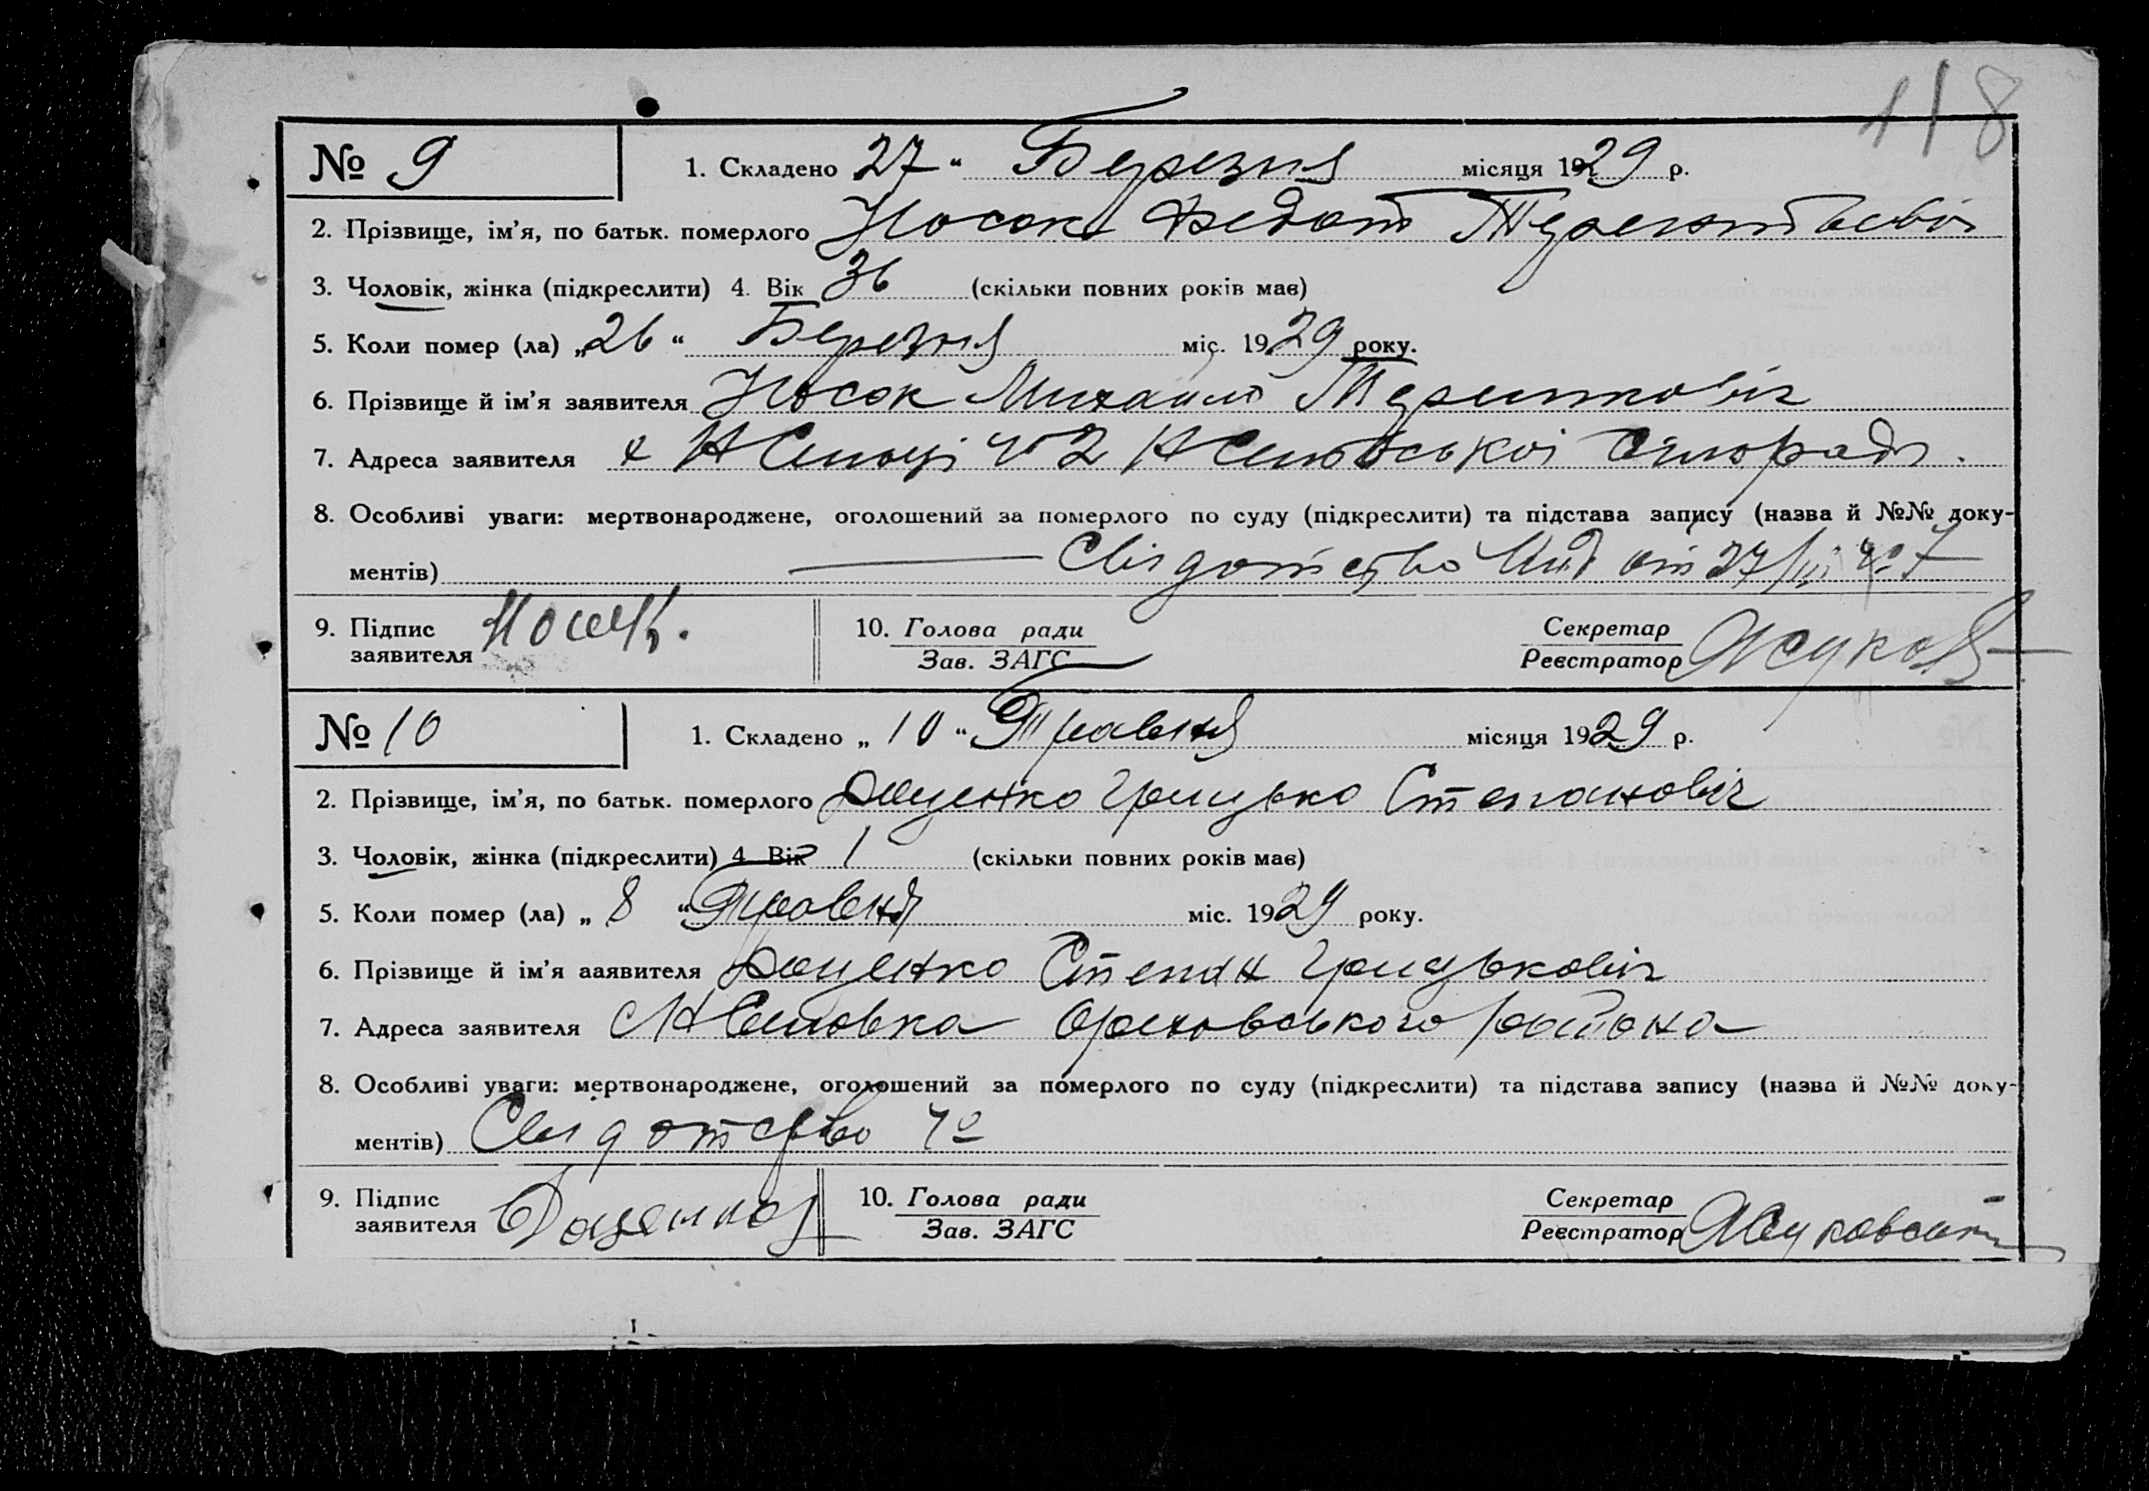 118
№ 9 1. Складено 27 “ Березня місяця 1929 р.
2. Прізвище, ім’я, по батьк. померлого Носок Федот
3. Чоловік, жінка (підкреслити) 4. Вік 36 (скільки повних років має)
5. Коли помер (ла) „26“ Березня міс. 1929 року.
6. Прізвище й ім’я заявителя Носок Михайло
7. Адреса заявителя № 2 Сілоради.
8. Особливі уваги: мертвонароджене, оголошений за померлого по суду (підкреслити) та підстава запису (назва й №№ доку-
ментів) Свідотство від 27/III № 7
9. Підпис 10. Голова ради Секретар
заявителя Зав. ЗАГС Реєстратор
№ 10 1. Складено „ 10 “ Травня місяця 1929 р.
2. Прізвище, ім’я, по батьк. померлого Доценко Грицько Степановіч
3. Чоловік, жінка (підкреслити) 4. Вік 1 (скільки повних років має)
5. Коли помер (ла) „ 8 “ Травня міс. 1929 року.
6. Прізвище й ім’я ааявителя Доценко Степан Грицьковіч
7. Адреса заявителя Ореховського района
8. Особливі уваги: мертвонароджене, оголошений за померлого по суду (підкреслити) та підстава запису (назва й №№ доку-
ментів) Свідотство №
9. Підпис 10. Голова ради Секретар
заявителя Доценко Зав. ЗАГС Реєстратор